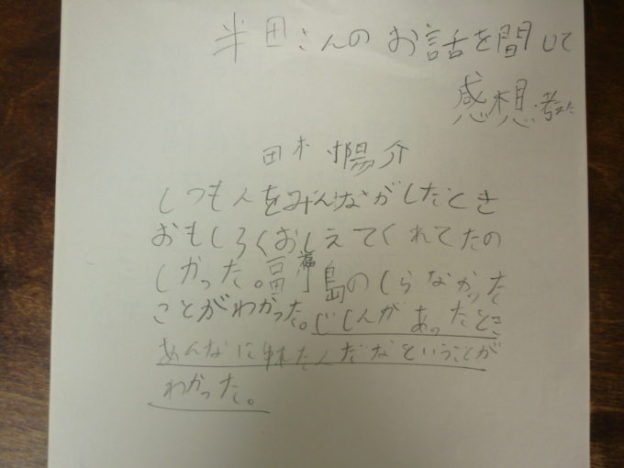 半田さんのお話を聞いて
感想・考えた
田木 陽介
しつも人をみんながしたとき
おもしろくおしえてくれてたの
しかった。福島のしらなかった
ことがわかった。じしんがあったとき
あんなに んだなということが
わかった。